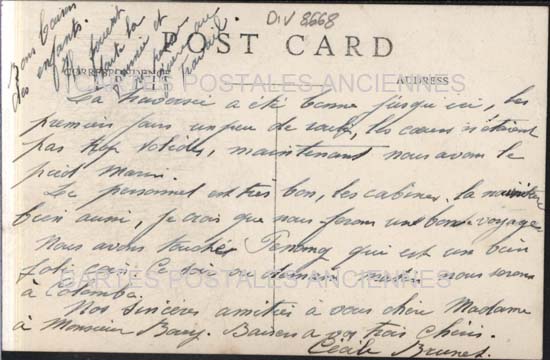 DIV 8668
Bons baisers
des enfants.
POST CARD
CORRESPONDENCE
ADDRESS
CARTES POSTALES ANCIENNES
La traversée a été bonne jusqu'ici, les
premiers jours un peu de roulis, les cœurs n'étaient
pas trop solides, maintenant nous avons le
pied marin.
Le personnel est très bon, les cabines, la nourriture
bien aussi, je crois que nous ferons un bon voyage
Nous avons touché Penang qui est un bien
joli coin. Ce soir ou demain matin, nous serons
à Colombo.
Nos sincères amitiés à vous chère Madame
à Monsieur Baisers à vos trois chéris.
Cécile Brunet
CARTES POSTALES ANCIENNES